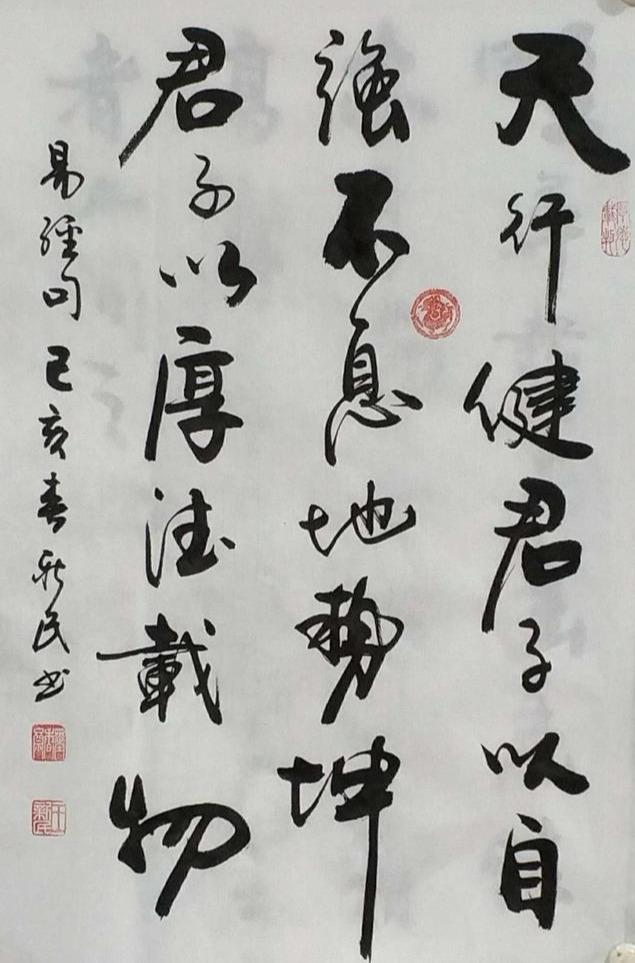 天行健君子以自
強不息地勢坤
君子以厚德載物
易經句己亥春新民书